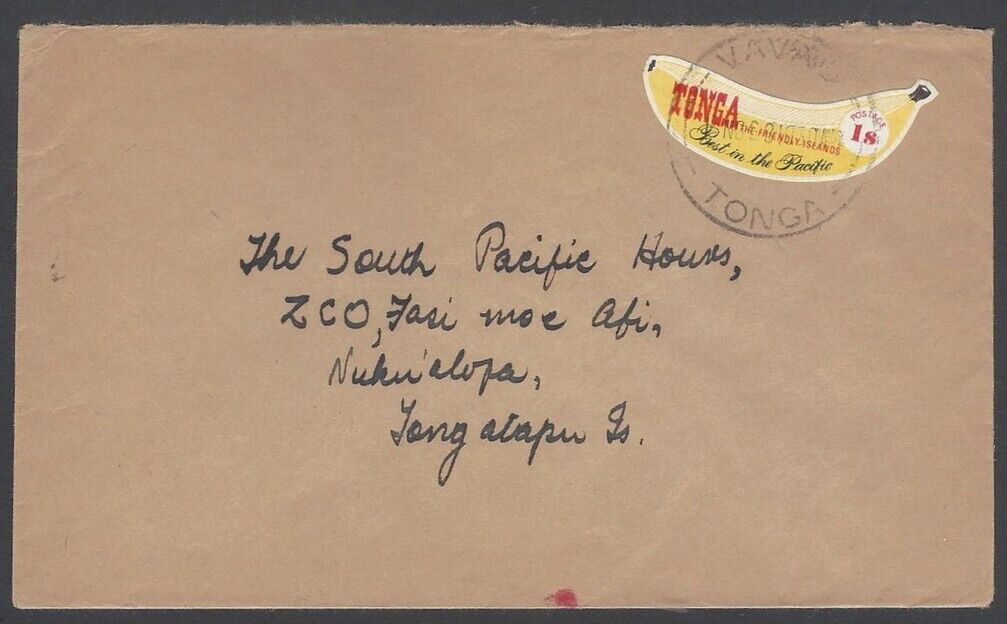 VAVA'U
TONGA
THE FRIENDLY ISLANDS
Best in the Pacific
POSTAGE
1s
TONGA
The South Pacific Hours,
ZCO, Fasi moe Afi,
Nuku'alofa,
Tongatapu Is.